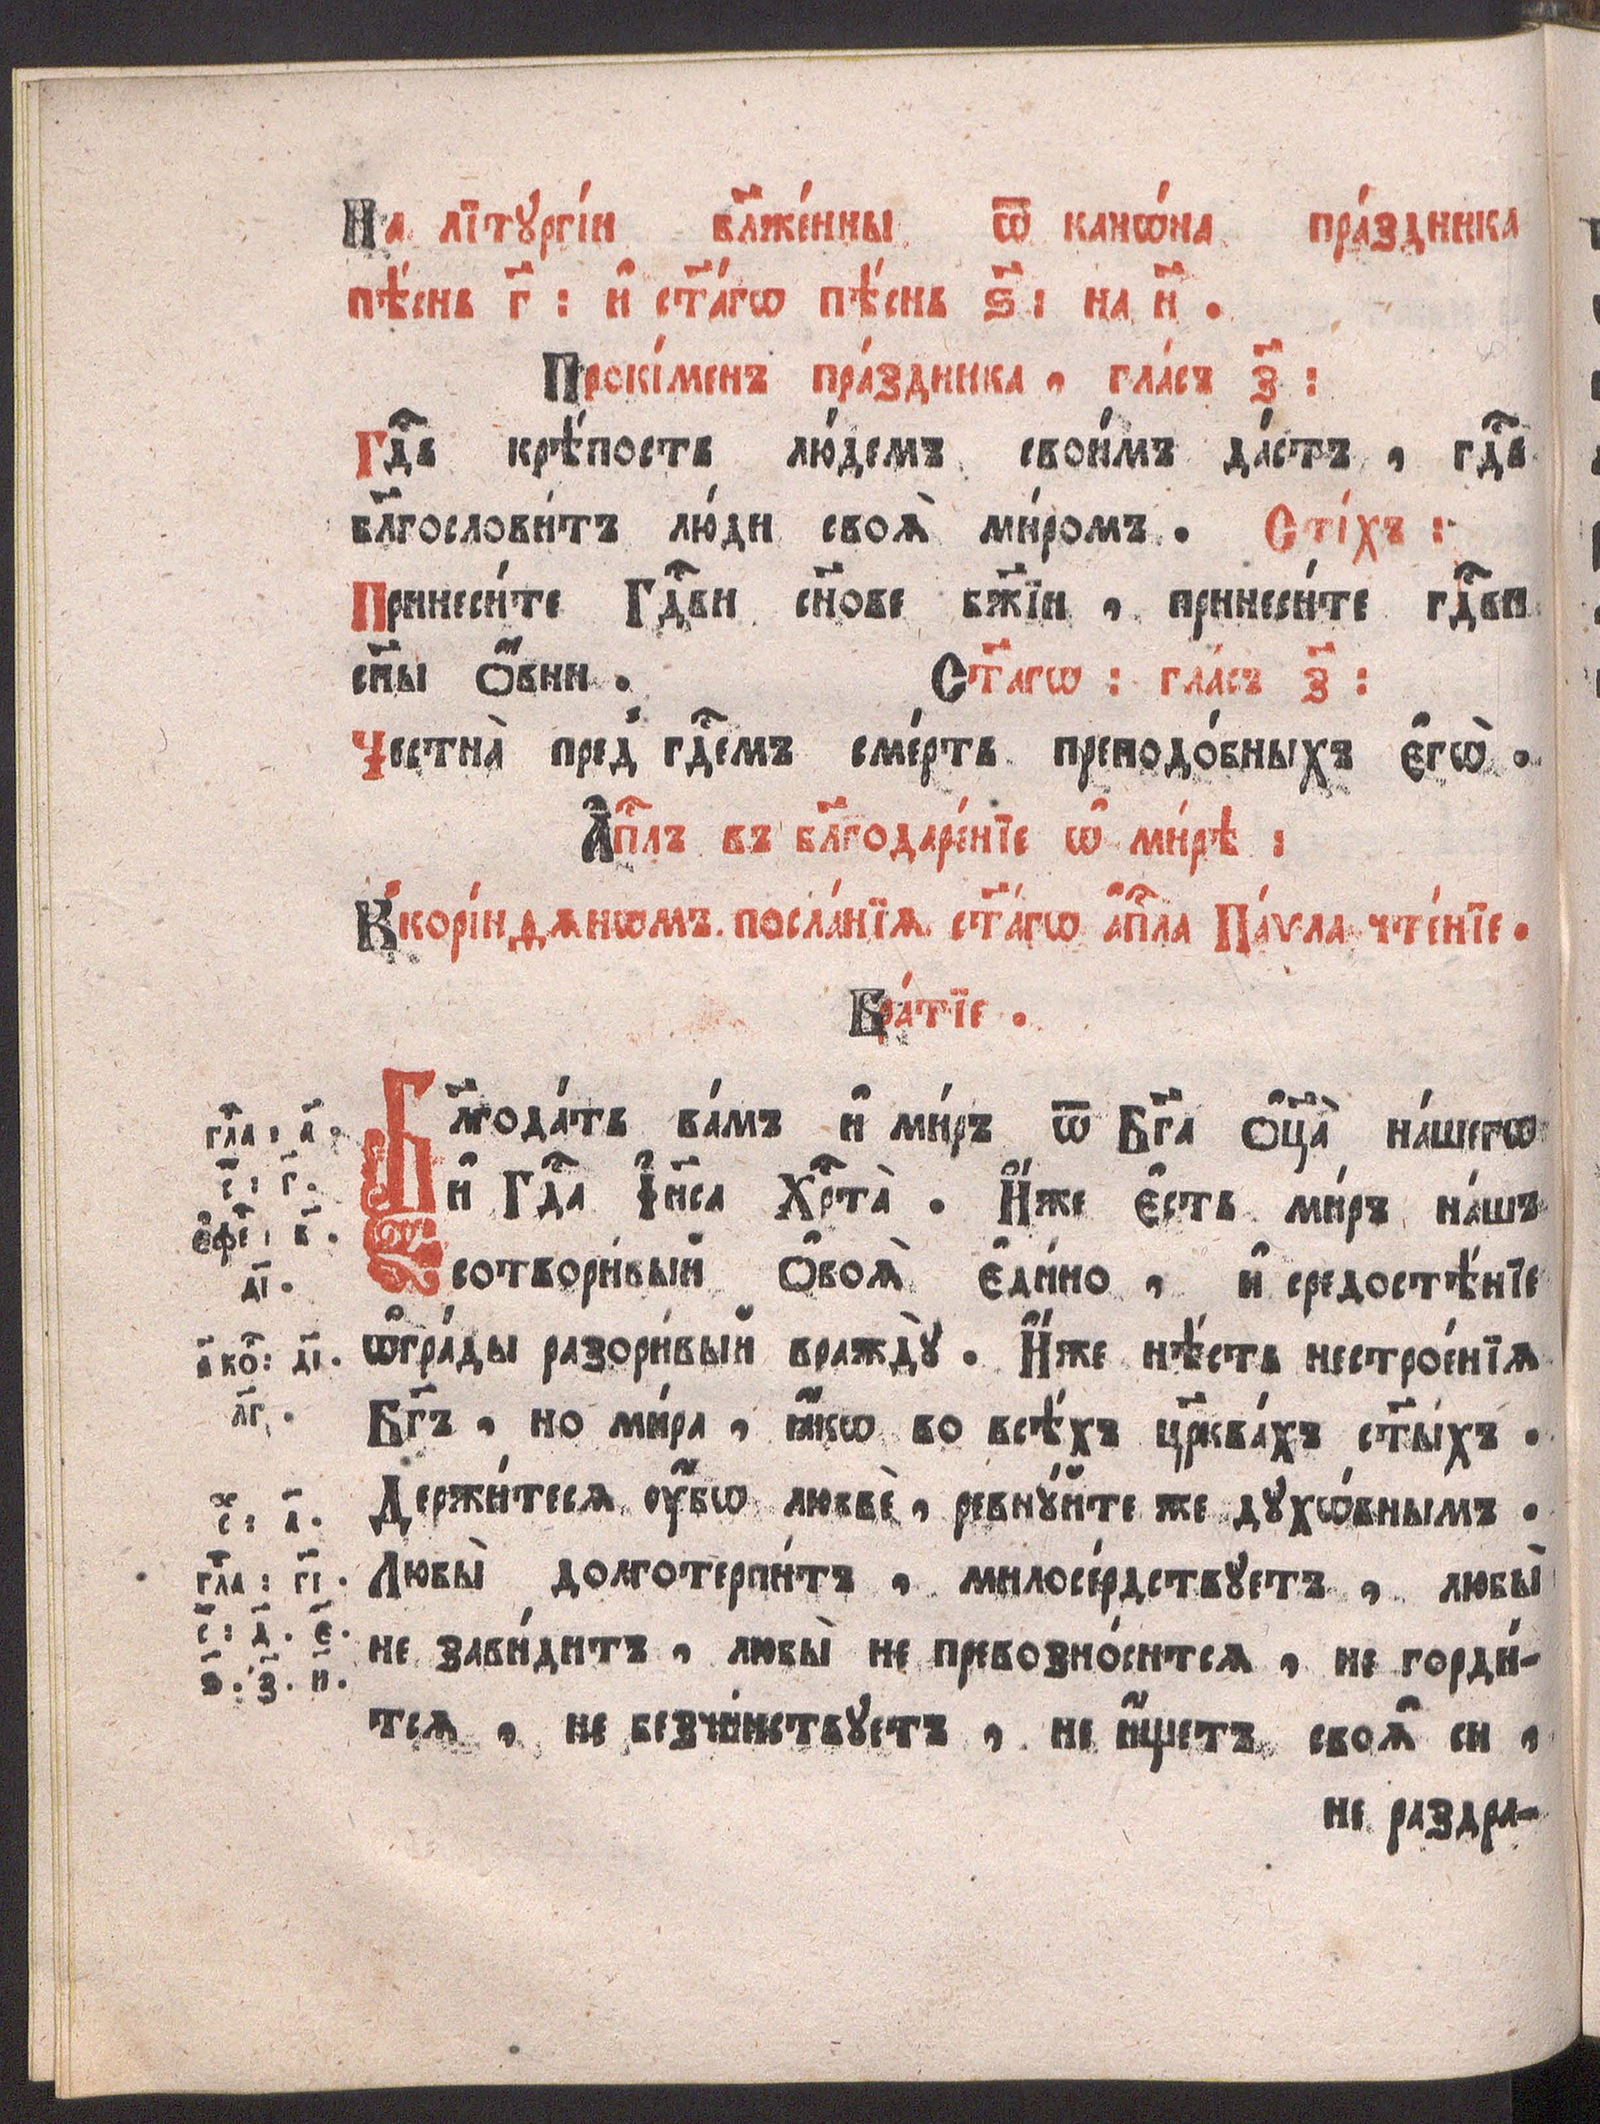 На лїтꙋргі́и бл҃же́нны ѿ канѡ́на пра́здника
пѣ́снь г҃ : и҆ ст҃а́гѡ пѣ́снь ѕ҃ : на и҃ .
Прокі́менъ пра́здника , гла́съ з҃ :
Гдⷭ҇ь крѣ́пость лю́демъ свои́мъ да́стъ , гдⷭ҇ь
бл҃гослови́тъ лю́ди своѧ̀ ми́ромъ . Сті́хъ :
Принеси́те Гдⷭ҇ви сн҃ове бж҃їи , принеси́те гдⷭ҇ви
сн҃ы ѻ҆́вни . Ст҃агѡ : гла́съ з҃ :
Честна̀ пред̾ гдⷭ҇емъ сме́рть преподо́бныхъ є҆гѡ̀ .
А҆пⷭ҇лъ въ бл҃годаре́нїе ѡ҆ ми́рѣ :
К̾корі́нѳѧнѡмъ посла́нїѧ ст҃а́гѡ а҆пⷭ҇ла Па́ѵла чте́нїе .
Бра́тїе .
Бл҃года́ть ва́мъ и҆ ми́ръ ѿ Бг҃а Ѻ҆ц҃а̀ на́шегѡ
и҆ Гдⷭ҇а І҆и҃са Хрⷭ҇та̀ . И҆́же є҆́сть ми́ръ на́шъ
сотвори́вый ѻ҆боѧ̀ є҆ди́но , и҆ средостѣ́нїе
ѡ҆гра́ды разори́вый враждꙋ̀ . И҆́же нѣ́сть нестрое́нїѧ
Бг҃ъ , но ми́ра , ꙗ҆́кѡ во всѣ́хъ цр҃ква́хъ ст҃ы́хъ .
Держи́тесѧ ᲂу҆́бѡ любвѐ , ревнꙋ́йте же дꙋхѡ́внымъ .
Любы̀ долготерпи́тъ , милосе́рдствꙋетъ , любы̀
не зави́дитъ , любы̀ не превозно́ситсѧ , не горди́-
тсѧ , не безчи́нствꙋетъ , не и҆́щетъ своѧ҆̀ си ,
не раздра-
гл҃а : а҃ .
с҃ : г҃ .
є҆фе : в҃ .
д҃і .
а҃ ко : д҃і .
л҃г .
с : а҃ .
гл҃а : г҃і .
с҃ : д҃ . є҃ .
ѕ҃ . з҃ . и҃ .